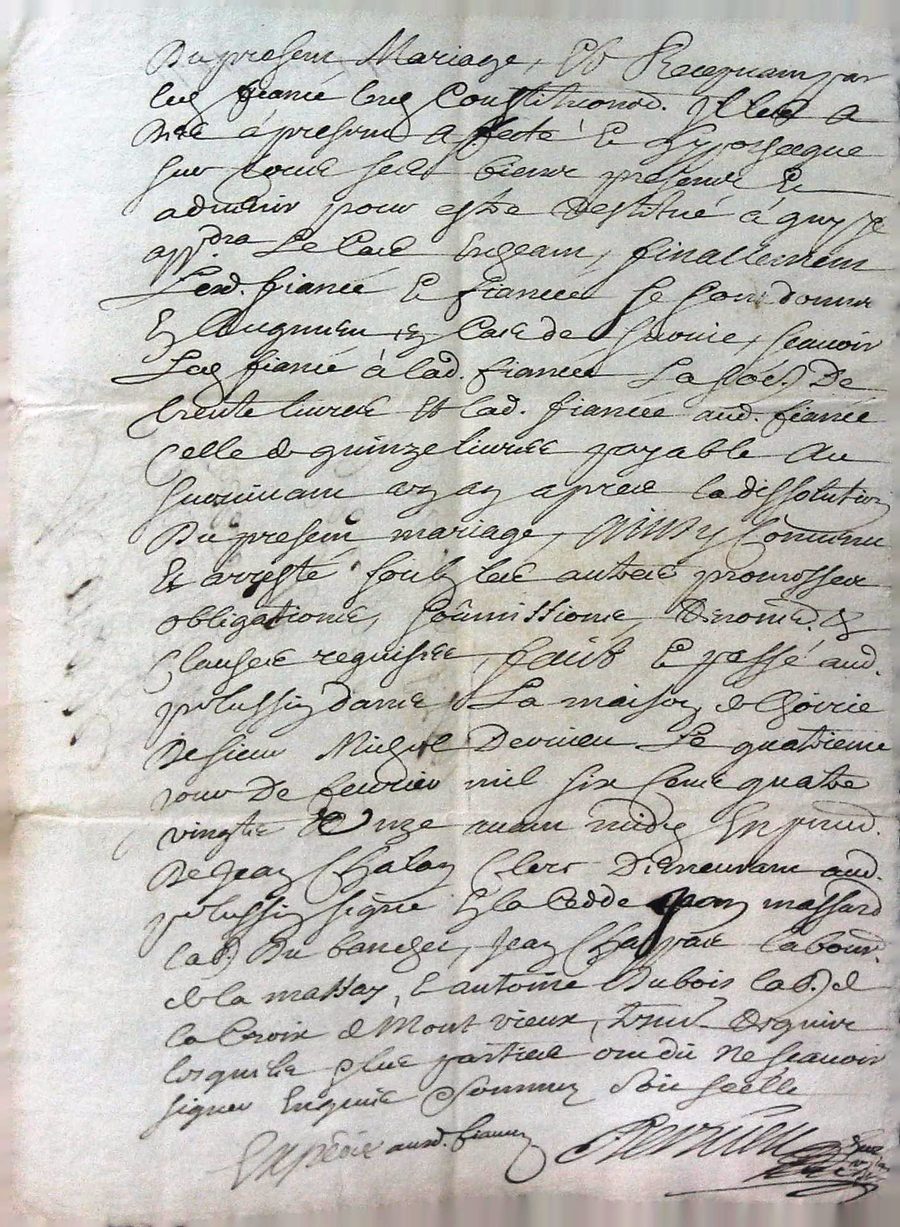 Du present Mariage, Et Recepvant par
led fiancé lesd Constitutions. Il les a
dès à present affecté & hypotheque
sur tous ses biens presens &
advenir pour estre Restitué à quy
app.dra Le Cas Escheant, finallement
Lesd. fiancé & fiancée se sont donnés
En Augment en Cas de survie, scavoir
Led fiancé à lad. fiancée La so.e De
trente livres Et lad. fiancée aud. fiancé
celle de quinze livres payable Au
survivant un an apres la dissolution
Du present mariage, Ainsy Convenu
Et arresté soubz les autres promesses
obligations, soûmissions, Renon.d. &
Clauses requises, faict & passé aud.
pelussin dans La maison d'hoirie
de sieur Devrieu Le quatrieme
jour De fevrier mil six cens quatre
vingts Onze avant midy En prnce.
De Jean Chalay Clerc Demeurant aud.
pelussin signé En la Cedde Jean massard
lab.r Du bancher, Jean Chappas labour.
de la massary, & antoine Dubois lab.r de
la Croix de Montvieux, tesm. Requis
lesquels & les parties ont dit ne scavoir
signer Enquis & Sommés Soit scellé
Expedié ausd. fiancés
Devrieu